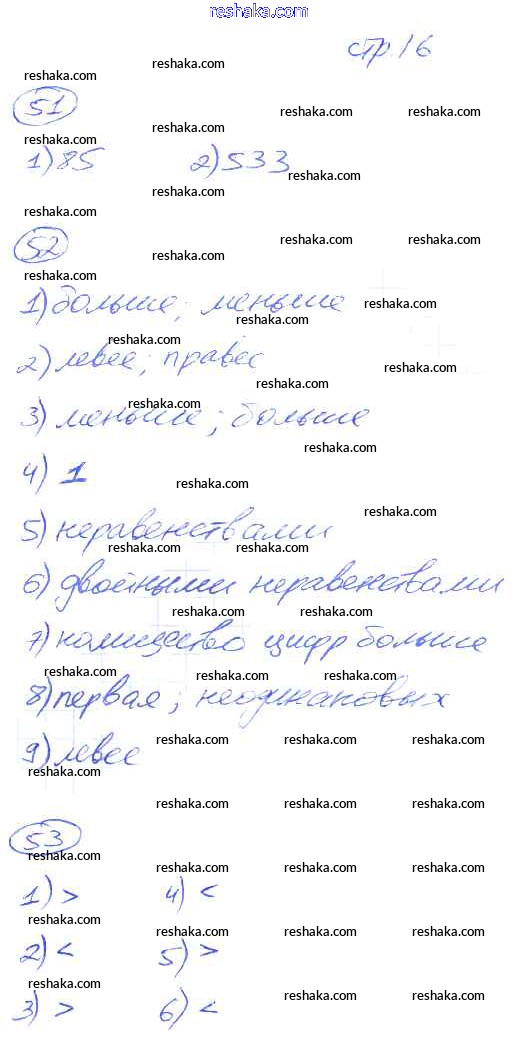 reshaka.com
стр. 16
51
1) 85 2) 533
52
1) больше; меньше
2) левее; правее
3) меньше; больше
4) 1
5) неравенствами
6) двойными неравенствами
7) количество цифр больше
8) первая; неодинаковых
9) левее
53
1) > 4) <
2) < 5) >
3) > 6) <